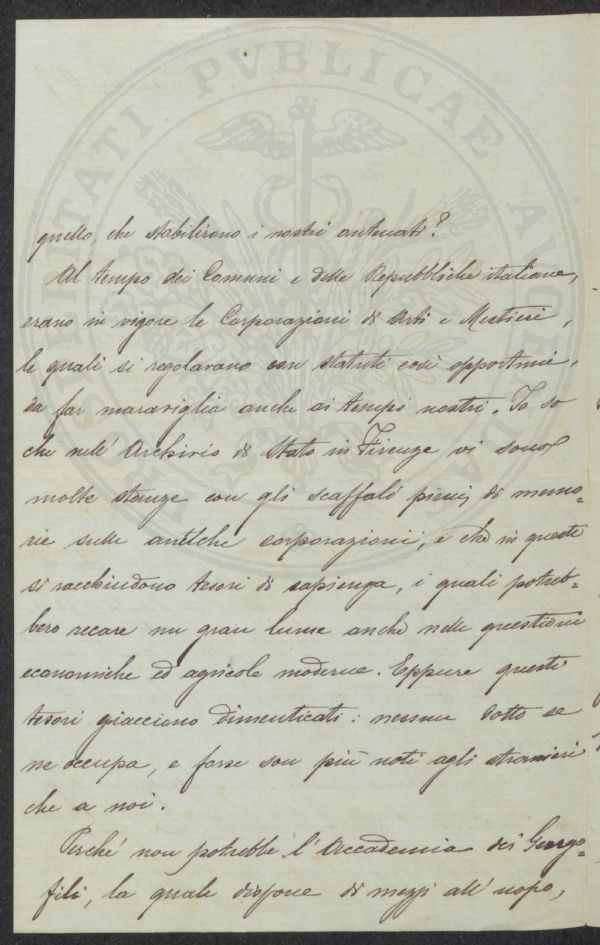 quello, che stabilirono i nostri antenati?
Al tempo dei Comuni e delle Repubbliche italiane,
erano in vigore le Corporazioni di Arti e Mestieri,
le quali si regolavano con statuti così opportuni,
da far maraviglia anche ai tempi nostri. Io so
che nell' Archivio di Stato in Firenze vi sono
molte stanze con gli scaffali pieni di memo-
rie sulle antiche corporazioni, e che in queste
si racchiudono tesori di sapienza, i quali potreb-
bero recare un gran lume anche nelle questioni
economiche ed agricole moderne. Eppure questi
tesori giacciono dimenticati: nessun dotto se
ne occupa, e forse son più noti agli stranieri
che a noi.
Perché non potrebbe l' Accademia dei Georgo-
fili, la quale dispone di mezzi all' uopo,
PROSPERITATI PVBLICAE AVGENDAE